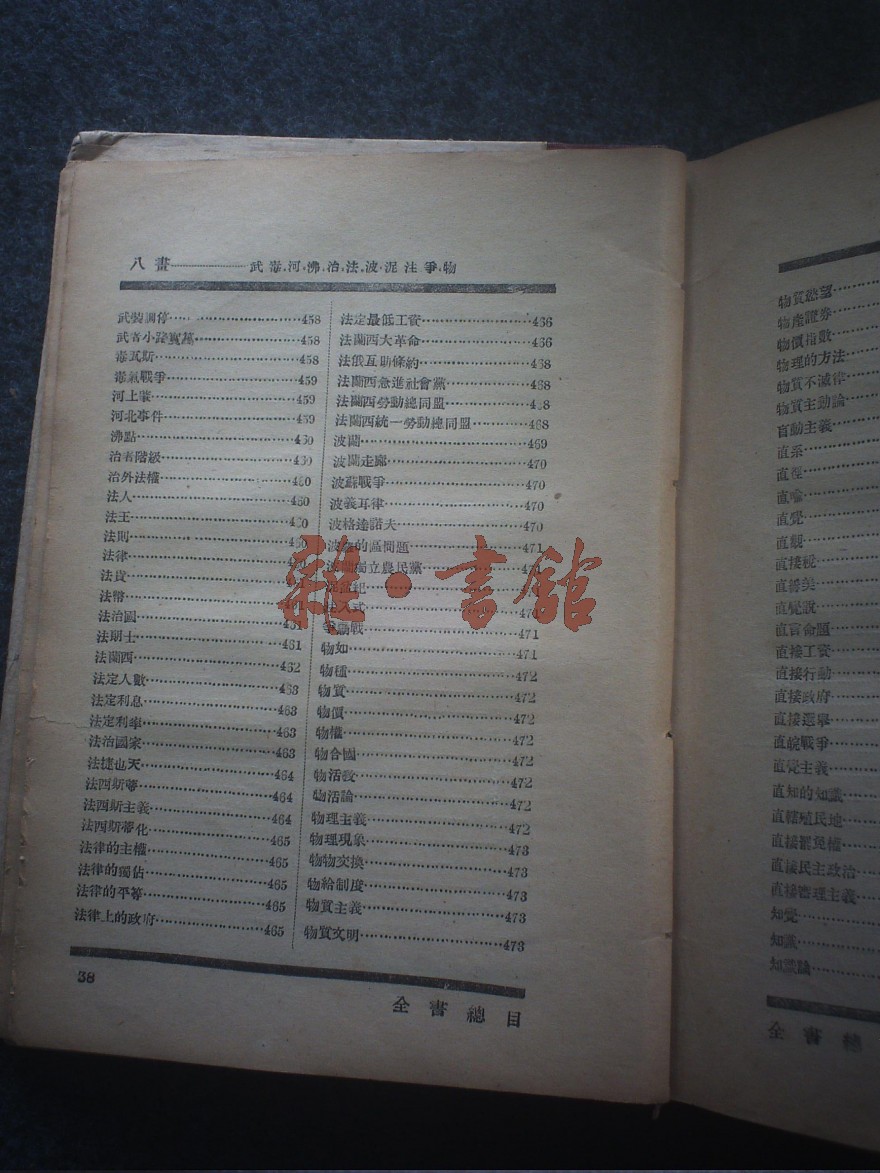 八畫————武毒河佛治法波泥注爭物
武裝調停……458
武者小路實篤……458
毒瓦斯……458
毒氣戰爭……459
河上肇……459
河北事件……459
沸點……460
治者階級……460
治外法權……460
法人……460
法王……460
法則……460
法律……
法貨……
法幣……461
法治國……461
法朗士……461
法蘭西……462
法定人數……463
法定利息……463
法定利率……463
法治國家……463
法捷也夫……464
法西斯蒂……464
法西斯主義……464
法西斯蒂化……465
法律的主權……465
法律的獨佔……465
法律的平等……465
法律上的政府……465
法定最低工資……466
法蘭西大革命……466
法俄互助條約……468
法蘭西急進社會黨……468
法蘭西勞動總同盟……468
法蘭西統一勞動總同盟……468
波蘭……469
波蘭走廊……470
波蘇戰爭……470
波義耳律……470
波格達諾夫……470
波　的區問題……471
波蘭獨立農民黨……471
爭　戰……471
物如……471
物種……472
物質……472
物價……472
物權……472
物合國……472
物活教……472
物活論……472
物理主義……472
物理現象……473
物物交換……473
物給制度……473
物質主義……473
物質文明……473
38
全書總目
物質慾望……
物產證券……
物價指數……
物理的方法……
物質不滅律……
物質主動論……
盲動主義……
直系……
直徑……
直喻……
直覺……
直觀……
直接稅……
直覺說……
直言命題……
直接工資……
直接行動……
直接政府……
直接選舉……
直皖戰爭……
直覺主義……
直知的知識……
直轄殖民地……
直接罷免權……
直接民主政治……
直接審理主義……
知覺……
知識……
知識論……
全書總
雜·書舘